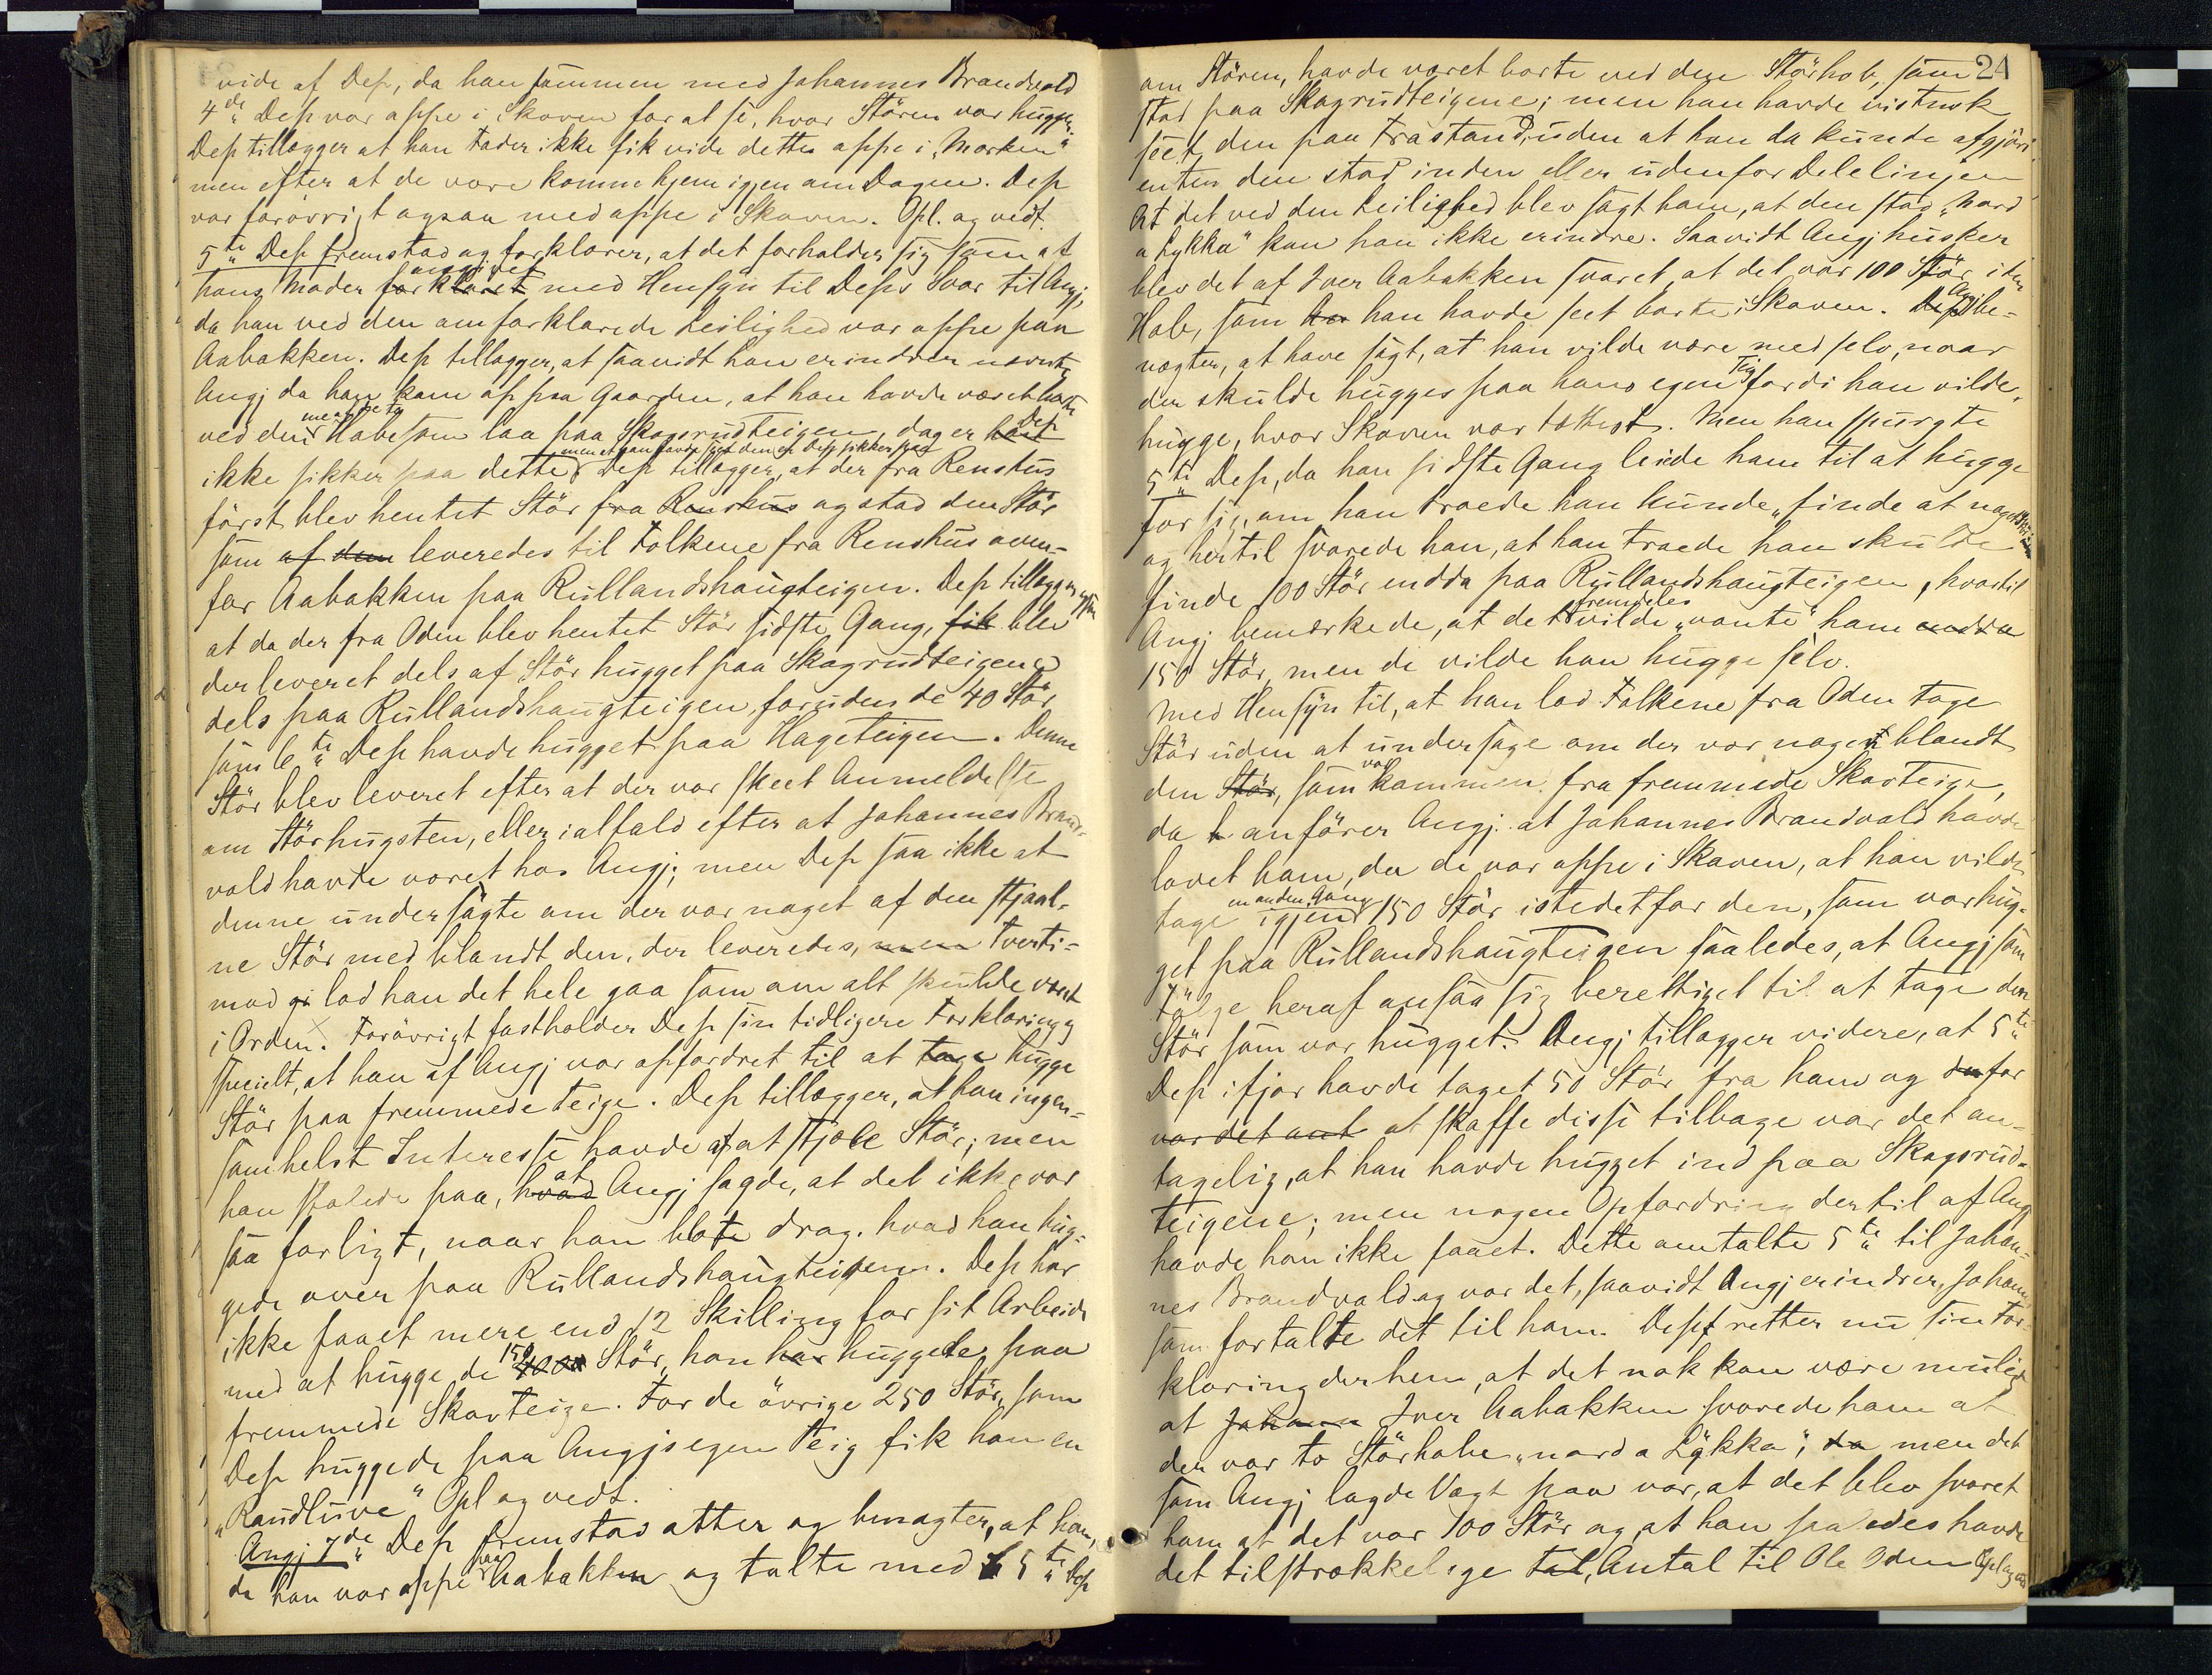 vide af Dep, da han sammen med Johannes Brandvold
4de Dep var oppe i Skoven for at se, hvor Stören var hugget.
Dep tillægger at han tader ikke fik vide dette oppe i „Marken"
men efter at de vare komne hjem igjen om Dagen. Dep
var forövrigt ogsaa med oppe i Skoven. Opl. og vedt.
5te Dep fremstod og forklarer, at det forholder sig som af
hans Moder forklaret angivet med Hensyn til Deps Svar til Angj,
da han ved den omforklarede Leilighed var oppe paa
Aabakken. Dep tillægger, at saavidt han erindrer nævnte
Angj da han kom op paa Gaarden, at han havde været borte
ved den meget Hobe som laa paa Skogrudteigen, dog er Dep
ikke sikker paa dette men at han havde seet den er Dep sikker paa Dep tillægger, at der fra Renshus
först blev hentet Stör fra Renshus og stod den Stör
som af dem leveredes til Folkene fra Renshus oven-
for Aabakken paa Rullandshaugteigen. Dep tillægger
at da der fra Oden blev hentet Stör sidste Gang, fik blev
der leveret dels af Stör hugget paa Skogrudteigene
dels paa Rullandshaugteigen foruden de 40 Stör
som 6te Dep havde hugget paa Hageteigen. Denne
Stör blev leveret efter at der var skeet Anmeldelse
om Störhugsten, eller ialfald efter at Johannes Brand-
vold havde været hos Angj; men Dep saa ikke at
denne undersögte om der var noget af den stjaal-
ne Stör med blandt den, der leveredes, men tverti-
mod gi lod han det hele gaa som om alt skulde været
i Orden. Forövrigt fastholder Dep sin tidligere Forklaring og
specielt, at han af Angj var opfordret til at tage hugge
Stör paa fremmede Teige. Dep tillægger, at han ingen-
somhelst Interesse havde af at stjæle Stör; men
han stolede paa, hvad at Angj sagde, at det ikke var
saa farligt, naar han blote drog. hvad han hug-
gede over paa Rullandshaugteigen. Dep har
ikke faaet mere end 12 Skilling for sit Arbeide
med at hugge de 150 Stör, han har huggede paa
fremmede Skovteige. For de övrige 250 Stör, som
Dep huggede paa Angjs egen Teig fik han en
„Raudluve" Opl og vedt.
Angj 7de Dep fremstod atter og benægter, at han,
da han var oppe paa Aabakken og talte med 5te Dep
24
om Stören, havde været borte ved den Störhob, som
stod paa Skogrudteigene; men han havde vistnok
seet den paa Frastand, uden at han da kunde afgjöre
enten den stod inden eller udenfor Delelinjen
At det ved den Leilighed blev sagt ham, at den stod „nord
a Lykka" kan han ikke erindre. Saavidt Angj husker
blev det af Iver Aabakken svaret, at det var 100 Stör i den
Hob, som han havde seet borte i Skoven. Dep Angj be-
nægter, at have sagt, at han vilde være med selv, naar
der skulde hugges paa hans egen Teig fordi han vilde
hugge, hvor Skoven var tættest. Men han spurgte
5te Dep, da han sidste Gang leiede ham til at hugge
for sig, om han troede han kunde „finde at noget
og hertil svarede han, at han troede han skulde
finde 100 Stör endda paa Rullandshaugteigen, hvortil
Angj bemærkede, at det fremdeles vilde „vante" ham endda
150 Stör, men de vilde han hugge selv.
Med Hensyn til, at han lod Folkene fra Oden tage
Stör uden at undersøge om der var noget blandt
den Stör, som var kommen fra fremmede Skovteige,
da h anförer Angj. at Johannes Brandvold havde
lovet ham, da de var oppe i Skoven, at han vilde
tage en anden Gang igjen 150 Stör istedetfor den, som var hug-
get paa Rullandshaugteigen saaledes, at Angj som
Fölge heraf ansaa sig berettiget til at tage den
Stör som var hugget. Angj tillægger videre, at 5te
Dep ifjor havde taget 50 Stör fra ham og for
var det ant at skaffe disse tilbage var det an-
tagelig, at han havde hugget ind paa Skogrud-
teigene; men nogen Opfordring dertil af Angj
havde han ikke faaet. Dette omtalte 5te til Johan-
nes Brandvold og var det, saavidt Angj erindrer, Johannes
som fortalte det til ham. Dep retter nu sin For-
klaring derhen, at det nok kan være muligt
at Johann Iver Aabakken svarede ham at
der var to Störhobe „nord a Lykka", da men det
som Angj lagde Vægt paa var, at det blev svaret
ham at det var 100 Stör og at han saaledes havde
det tilstrækkelige tal, Antal til Ole Oden Opl og vedt